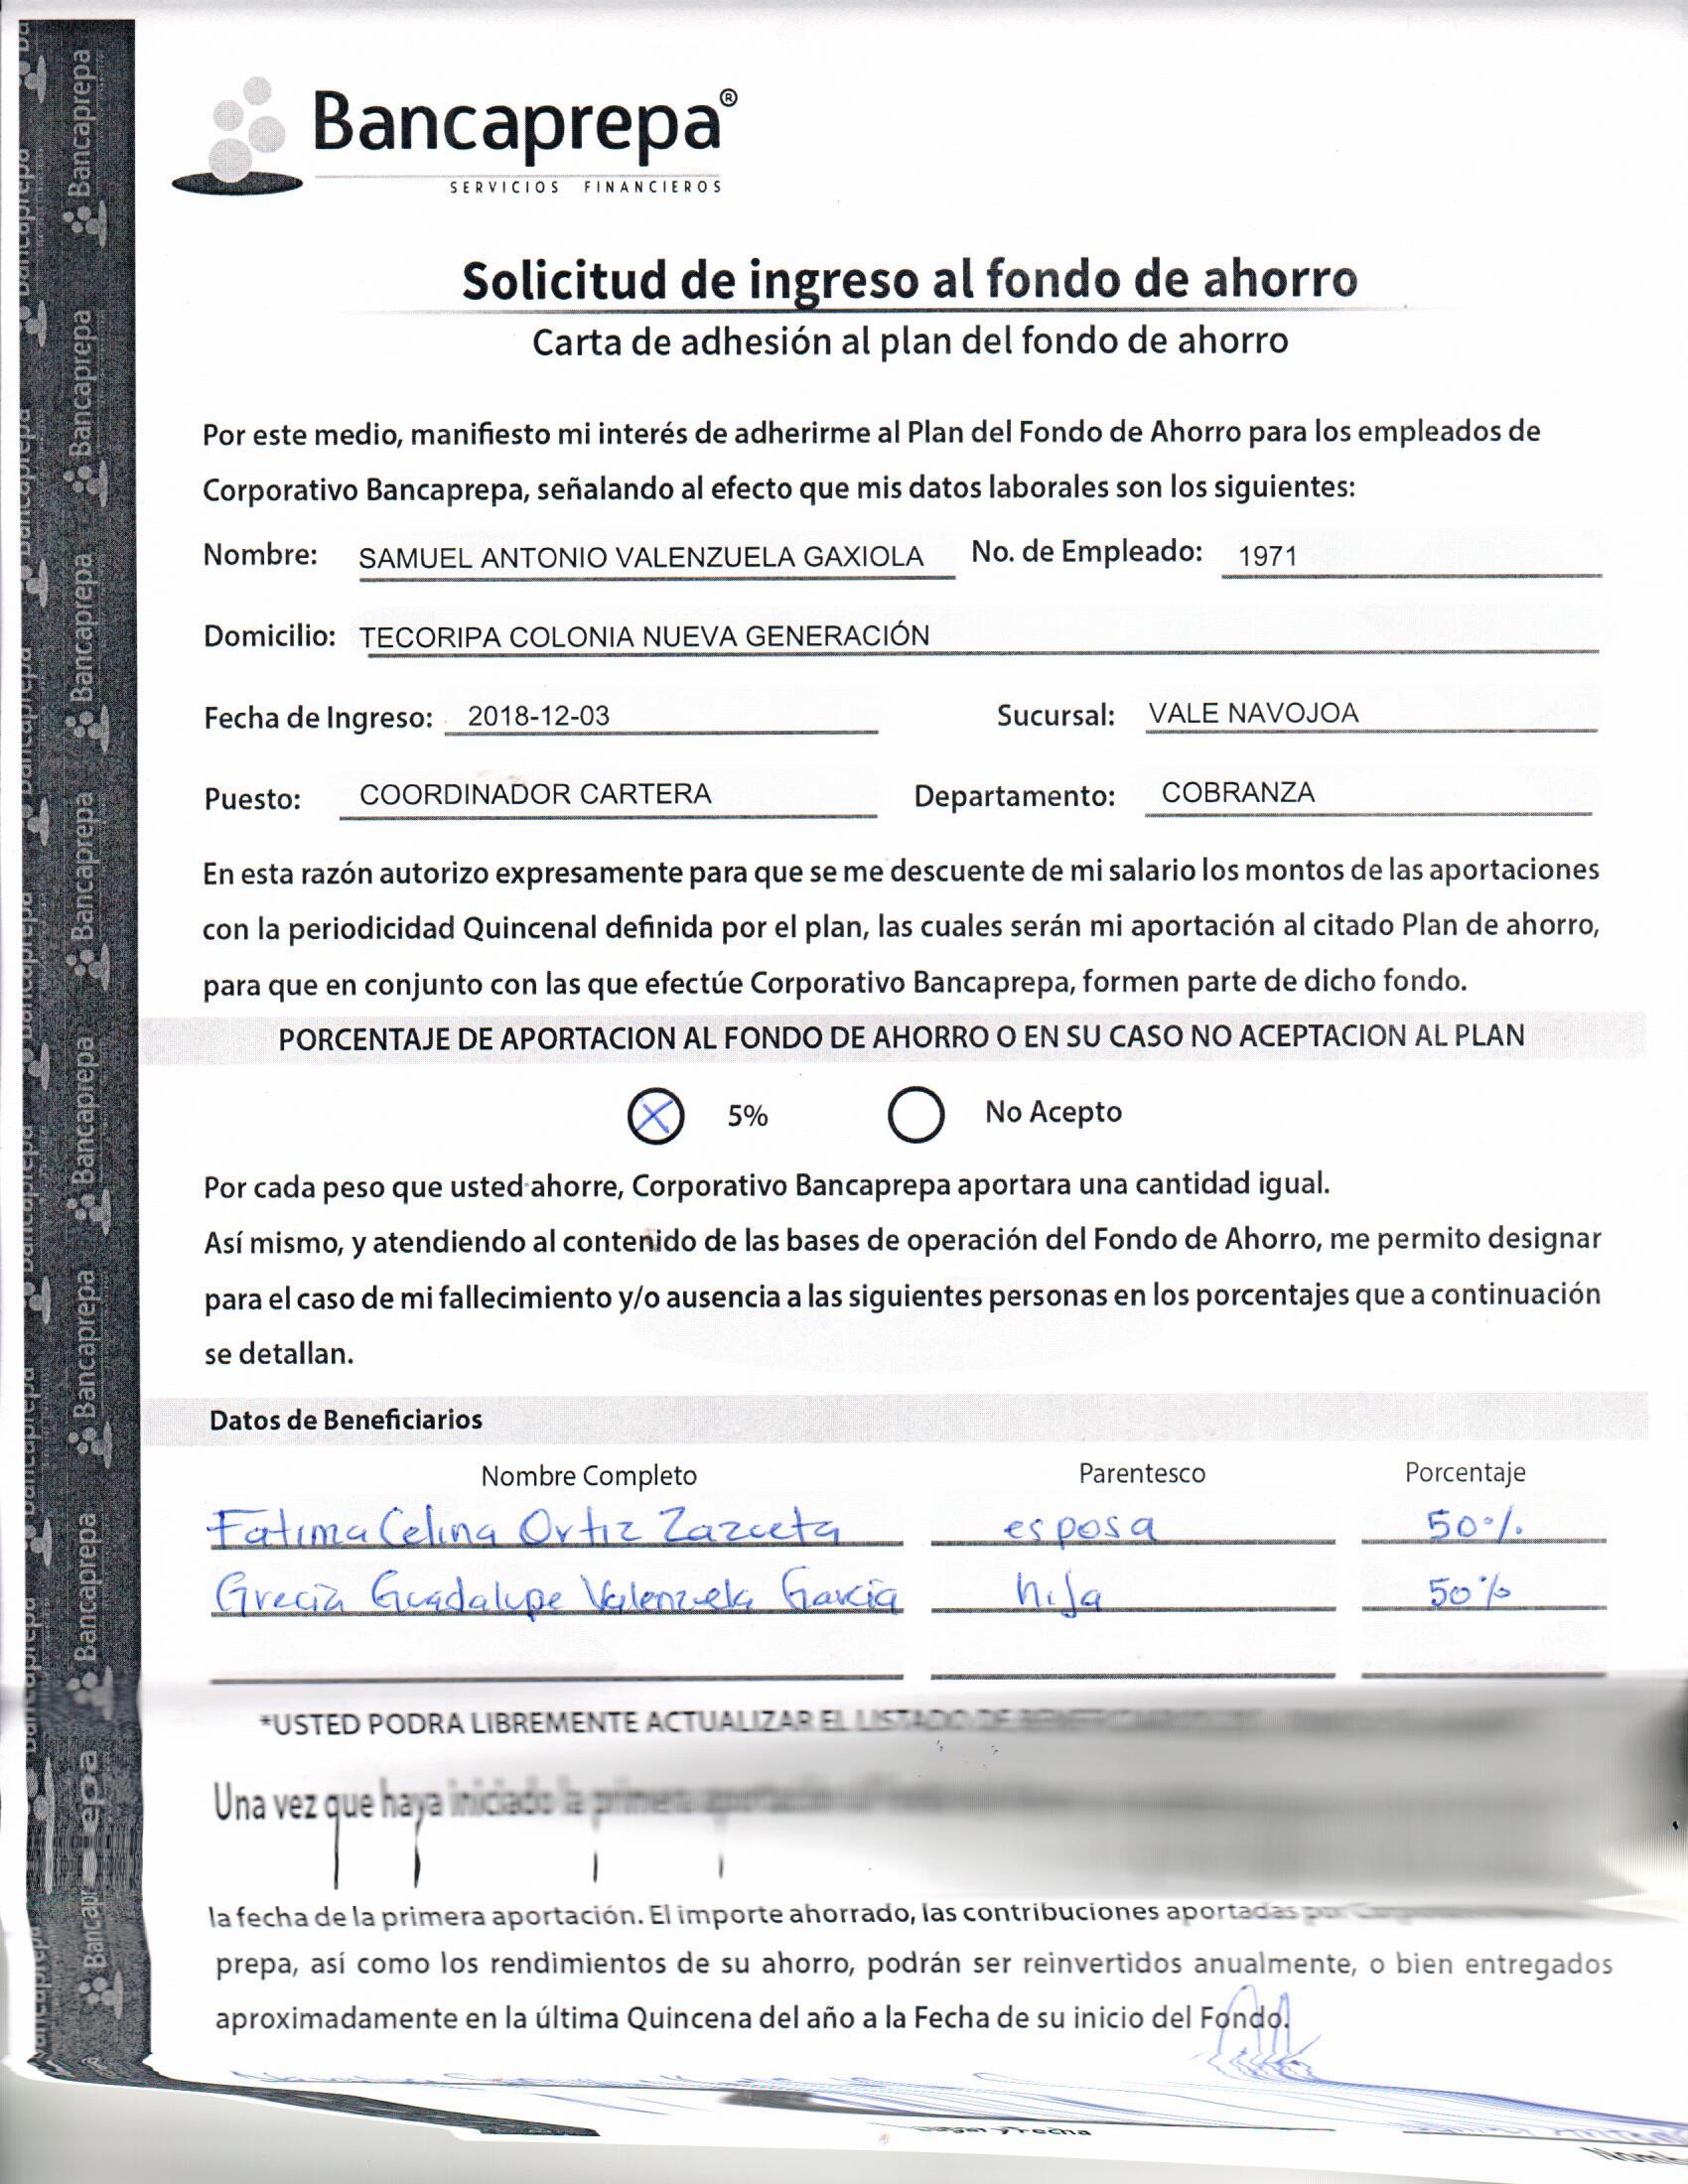 Bancaprepa®
SERVICIOS FINANCIEROS
Solicitud de ingreso al fondo de ahorro
Carta de adhesión al plan del fondo de ahorro
Por este medio, manifiesto mi interés de adherirme al Plan del Fondo de Ahorro para los empleados de
Corporativo Bancaprepa, señalando al efecto que mis datos laborales son los siguientes:
Nombre: SAMUEL ANTONIO VALENZUELA GAXIOLA No. de Empleado: 1971
Domicilio: TECORIPA COLONIA NUEVA GENERACIÓN
Fecha de Ingreso: 2018-12-03 Sucursal: VALE NAVOJOA
Puesto: COORDINADOR CARTERA Departamento: COBRANZA
En esta razón autorizo expresamente para que se me descuente de mi salario los montos de las aportaciones
con la periodicidad Quincenal definida por el plan, las cuales serán mi aportación al citado Plan de ahorro,
para que en conjunto con las que efectúe Corporativo Bancaprepa, formen parte de dicho fondo.
PORCENTAJE DE APORTACION AL FONDO DE AHORRO O EN SU CASO NO ACEPTACION AL PLAN
X 5% No Acepto
Por cada peso que usted ahorre, Corporativo Bancaprepa aportara una cantidad igual.
Así mismo, y atendiendo al contenido de las bases de operación del Fondo de Ahorro, me permito designar
para el caso de mi fallecimiento y/o ausencia a las siguientes personas en los porcentajes que a continuación
se detallan.
Datos de Beneficiarios
Nombre Completo Parentesco Porcentaje
Fatima Celina Ortiz Zazueta esposa 50%
Grecia Guadalupe Valenzuela Garcia hija 50%
*USTED PODRA LIBREMENTE ACTUALIZAR EL LISTADO DE
Una vez que haya iniciado la primera aportación
la fecha de la primera aportación. El importe ahorrado, las contribuciones aportadas por
prepa, así como los rendimientos de su ahorro, podrán ser reinvertidos anualmente, o bien entregados
aproximadamente en la última Quincena del año a la Fecha de su inicio del Fondo.